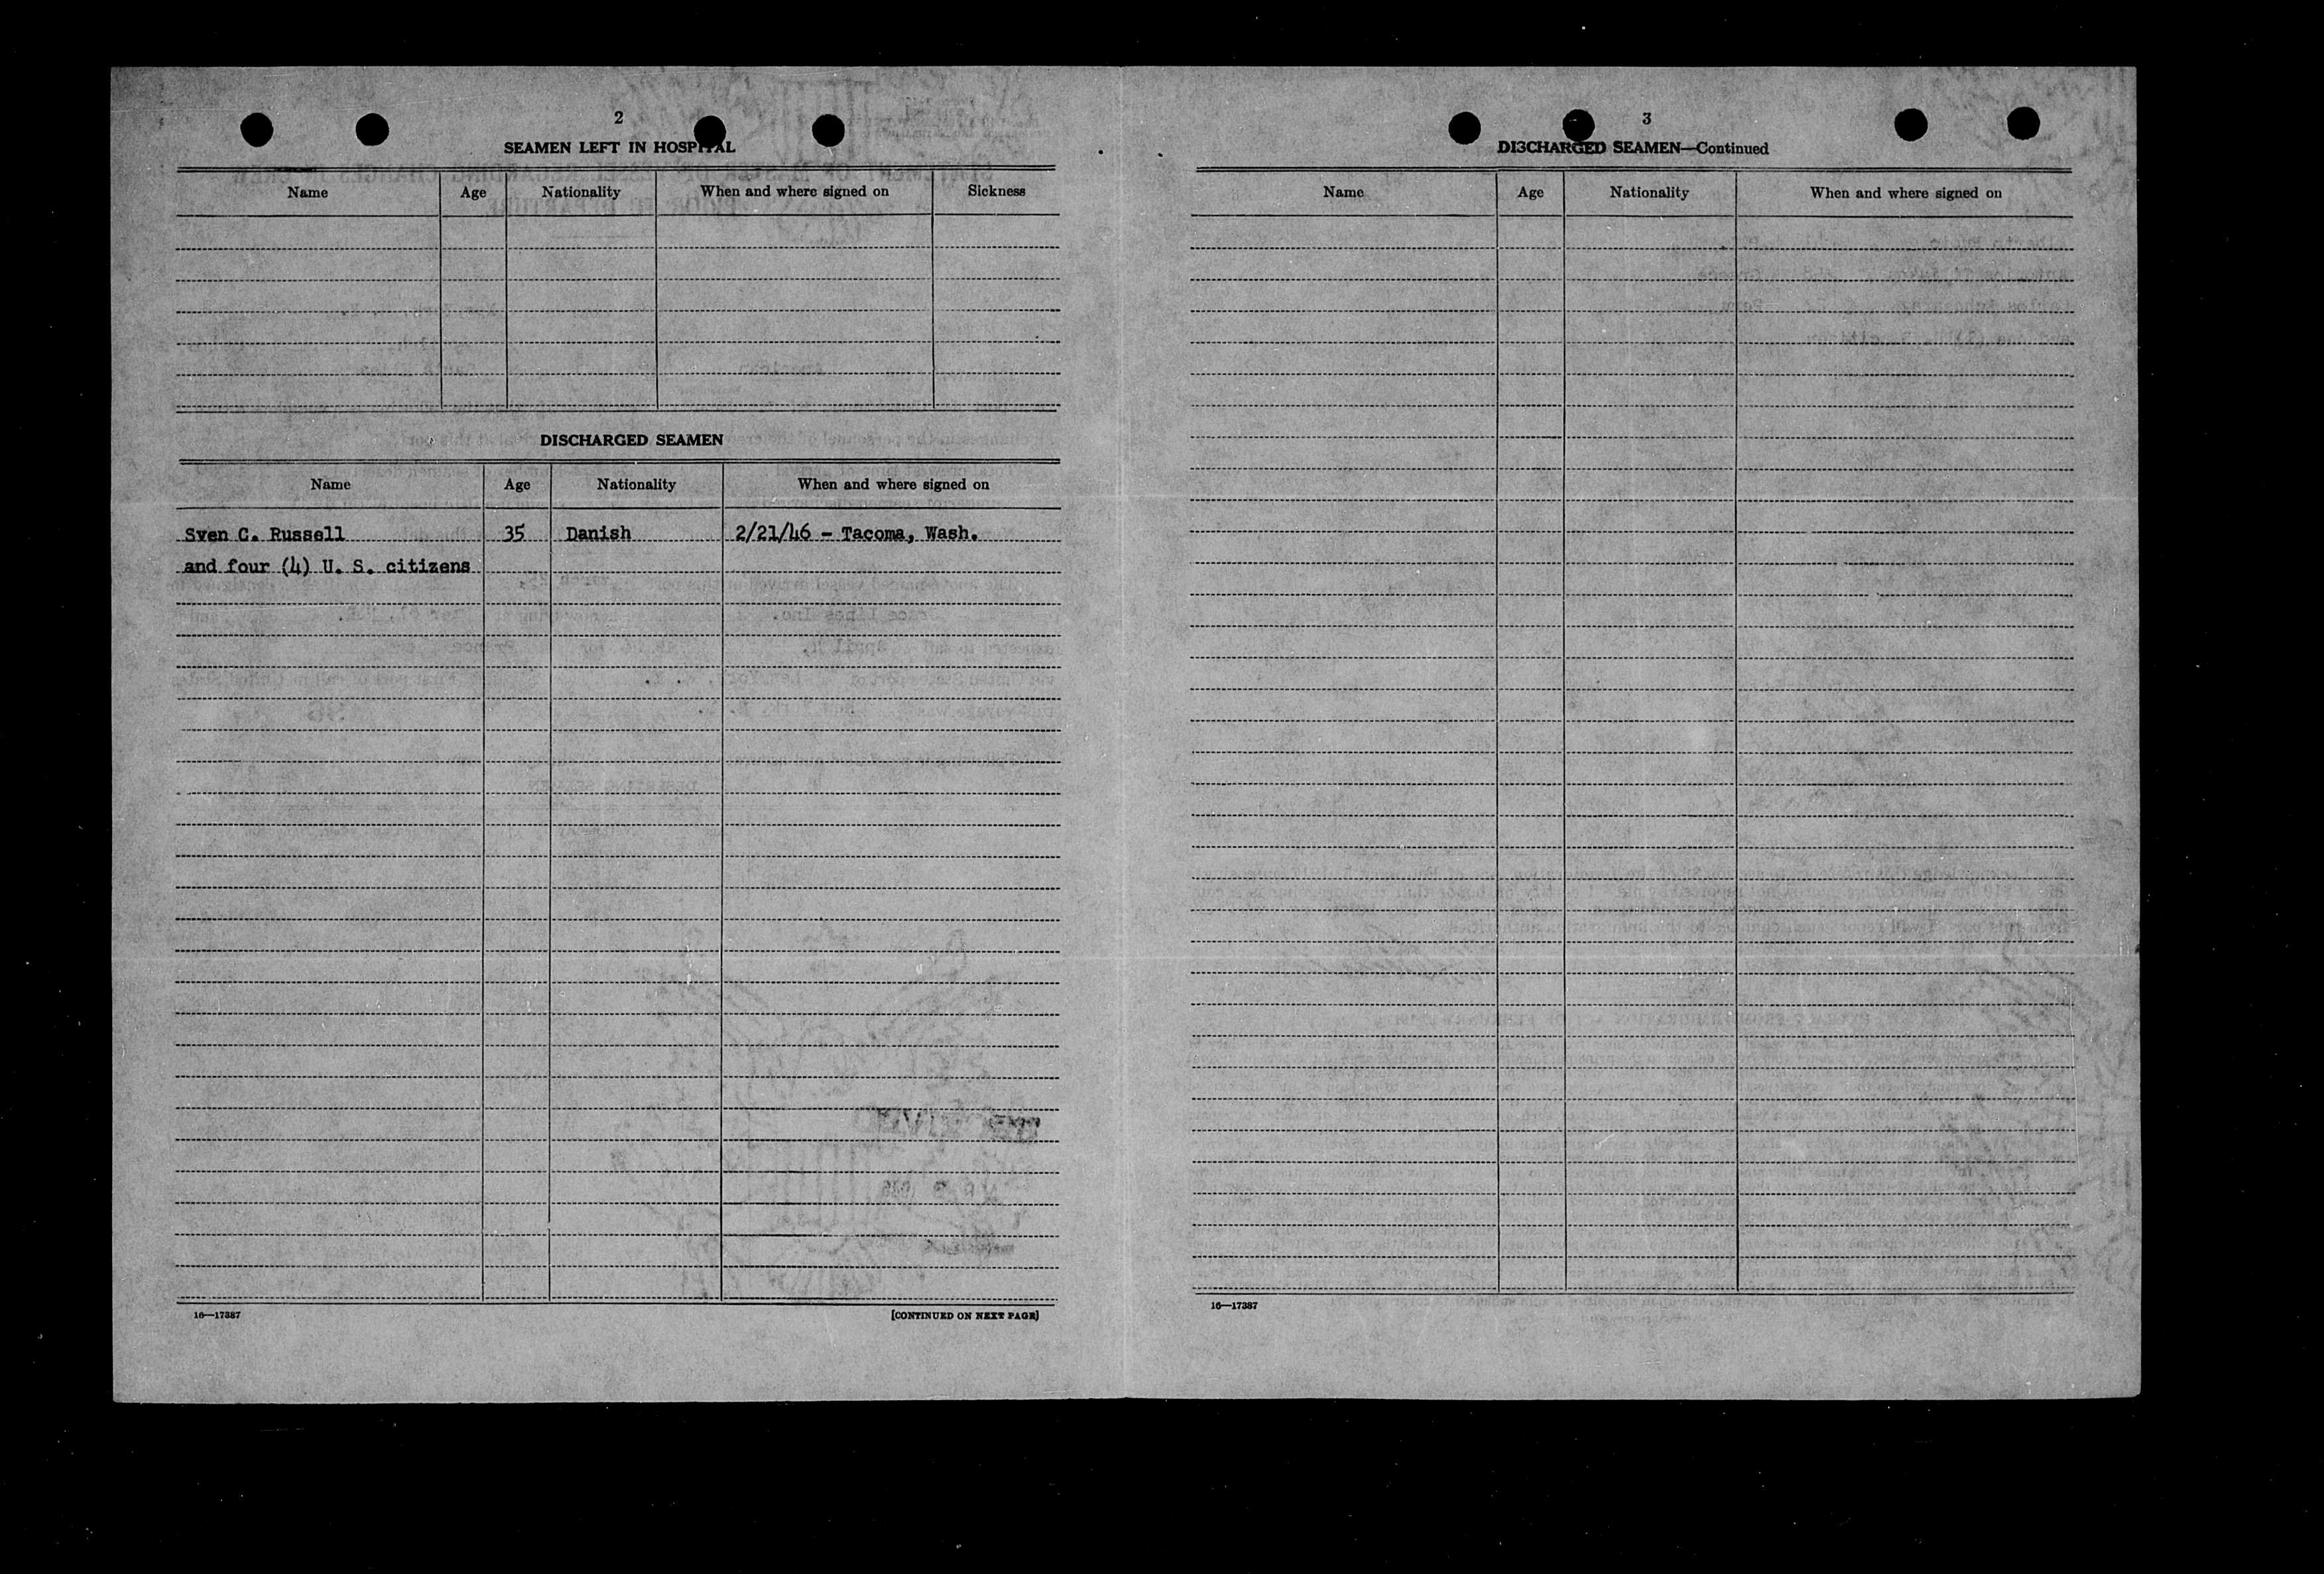 2
SEAMEN LEFT IN HOSPITAL
Name Age Nationality When and where signed on Sickness
DISCHARGED SEAMEN
Name Age Nationality When and where signed on
Sven C. Russell 35 Danish 2/21/46 - Tacoma, Wash.
and four (4) U. S. citizens
16—17387 [CONTINUED ON NEXT PAGE]
3
DISCHARGED SEAMEN—Continued
Name Age Nationality When and where signed on
16—17387